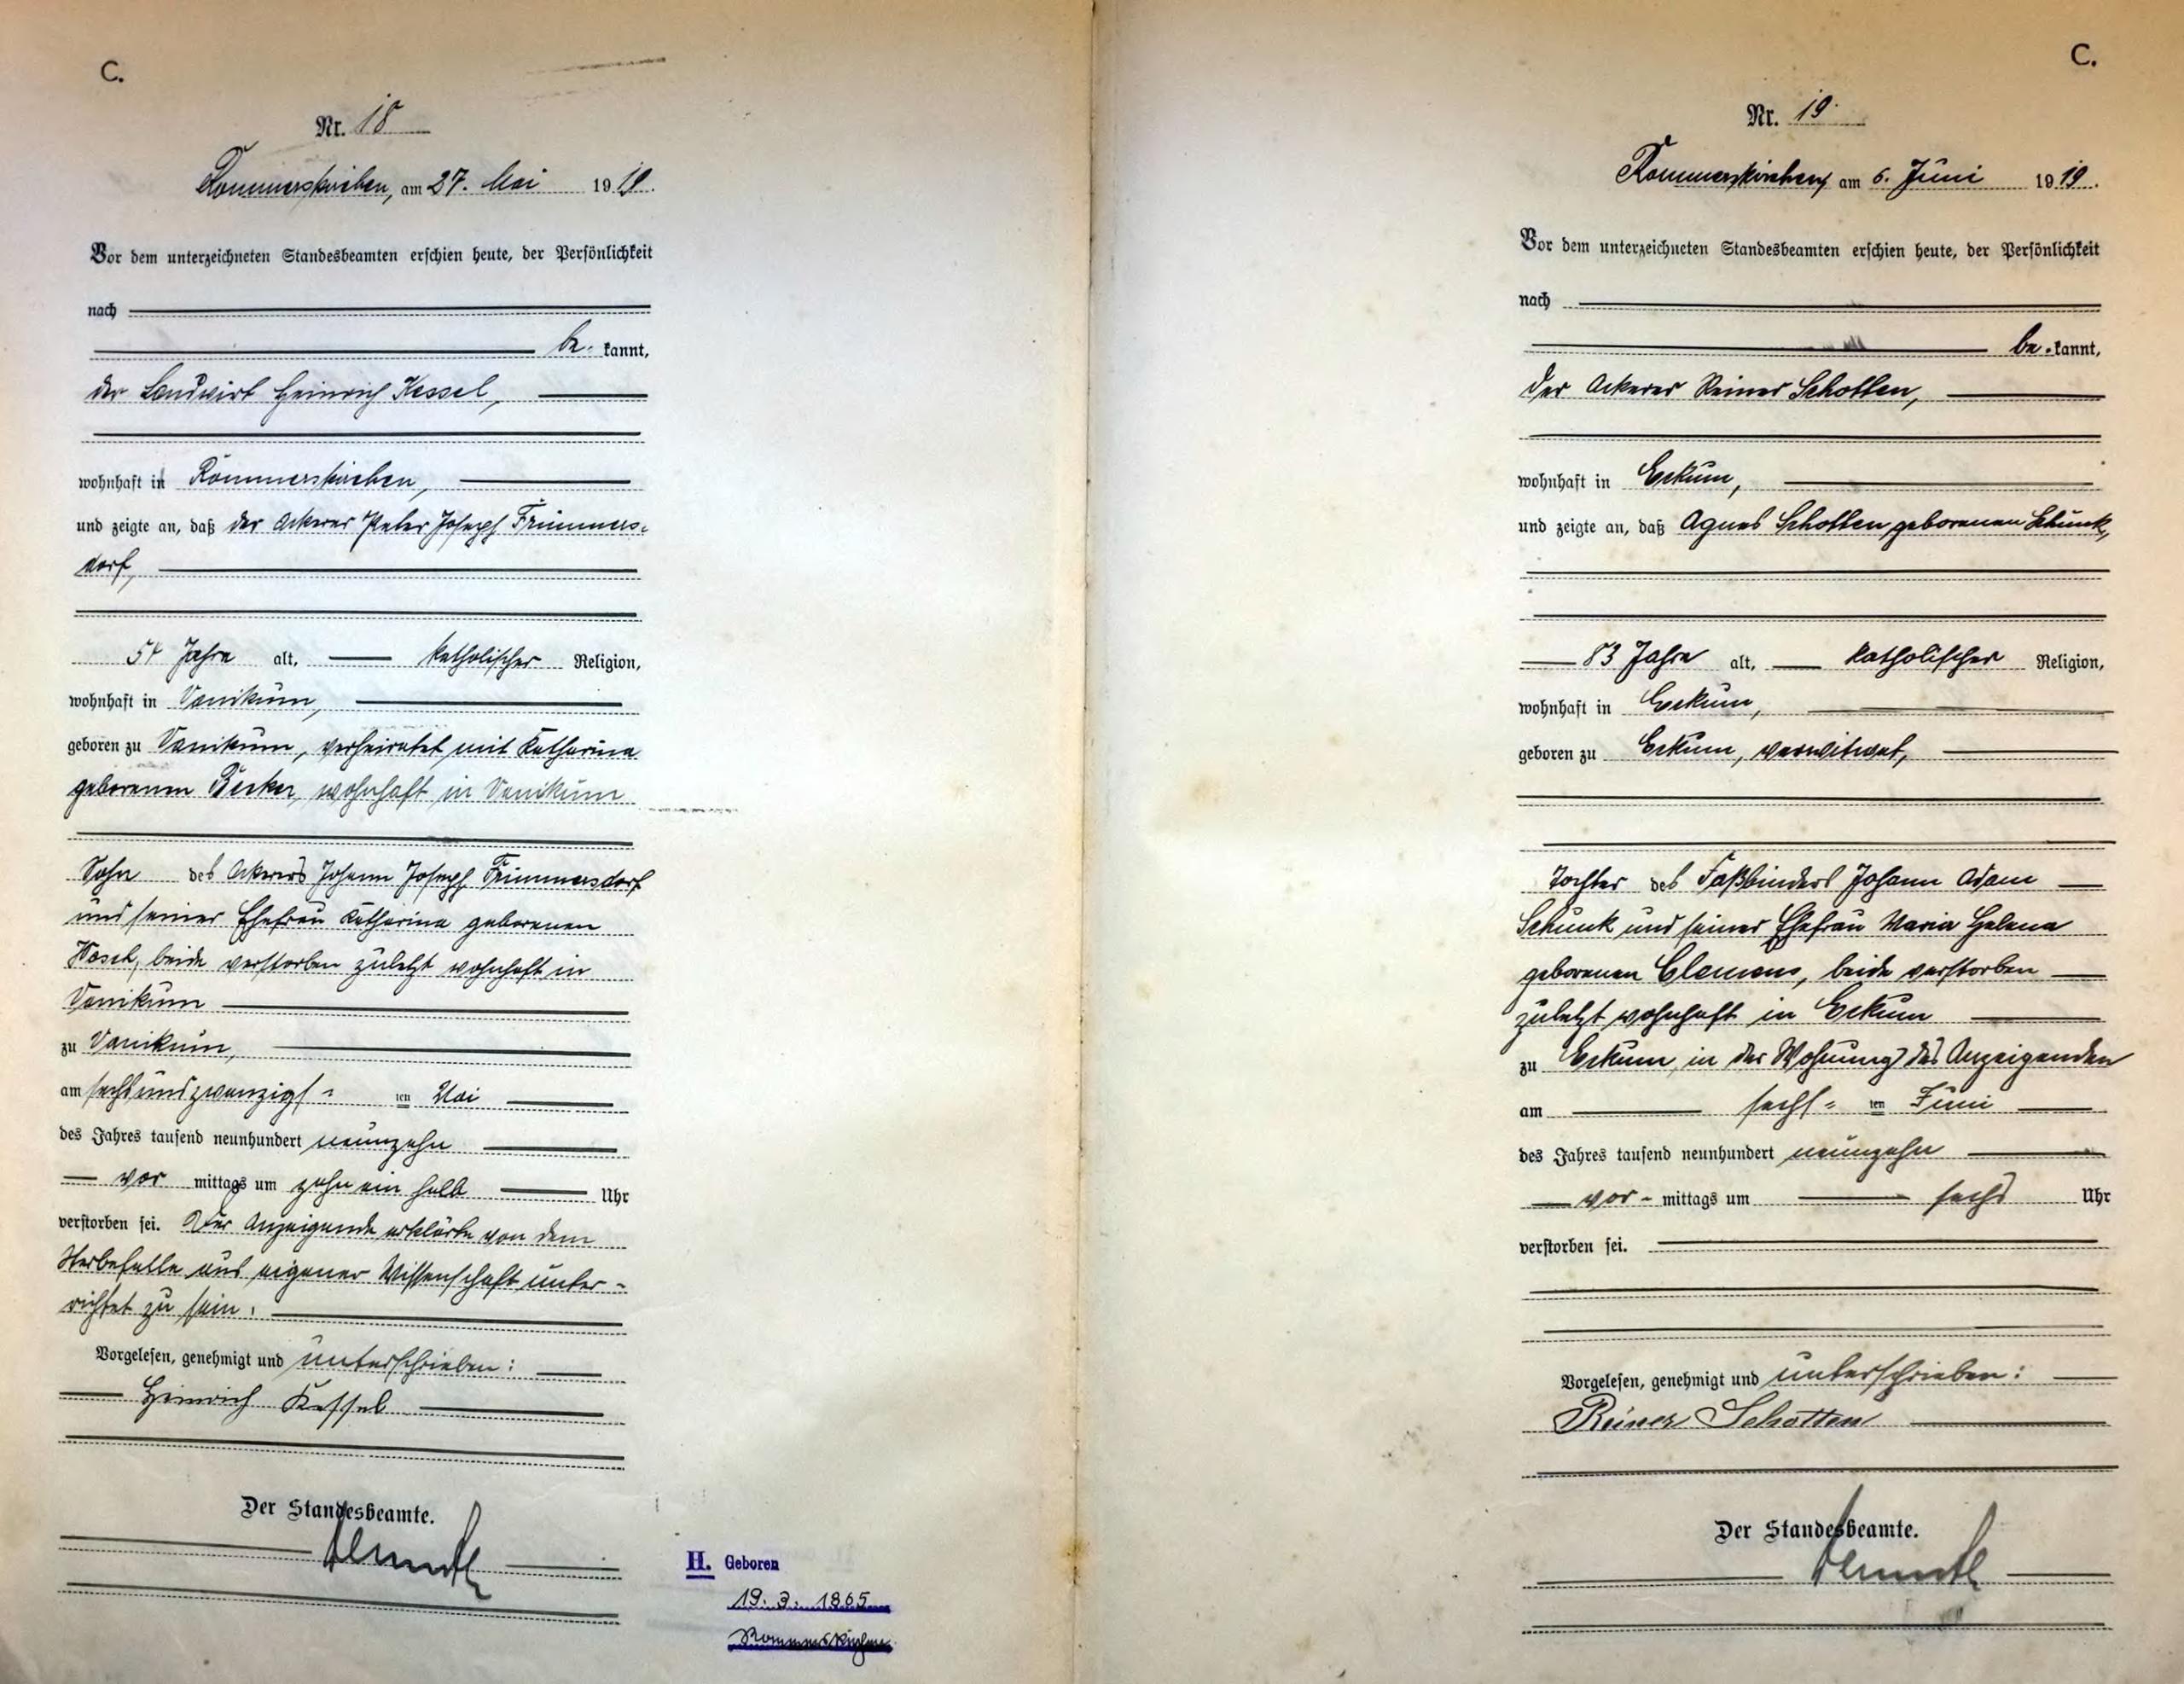 C.
Nr. 18
Rommerskirchen, am 27. Mai 1919.
Vor dem unterzeichneten Standesbeamten erschien heute, der Persönlichkeit
nach
be- kannt,
der Landwirt Heinrich Kessel,
wohnhaft in Rommerskirchen,
und zeigte an, daß der Ackerer Peter Joseph Frimmers-
dorf,
54 Jahre alt, katholischer Religion,
wohnhaft in Vanikum,
geboren zu Vanikum, verheiratet mit Katharina
geborenen Becker, wohnhaft in Vanikum
Sohn des Ackerers Johann Joseph Frimmersdorf
und seiner Ehefrau Katharina geborenen
beide verstorben zuletzt wohnhaft in
Vanikum
zu Vanikum,
am sechsundzwanzigs- ten Mai
des Jahres tausend neunhundert neunzehn
vor mittags um zehn ein halb Uhr
verstorben sei. Der Anzeigende erklärte von dem
Sterbefalle aus eigener Wissenschaft unter-
richtet zu sein.
Vorgelesen, genehmigt und unterschrieben:
Heinrich Kessel
Der Standesbeamte.
H. Geboren
19. 3. 1865
Rommerskirchen
C.
Nr. 19
Rommerskirchen, am 6. Juni 1919.
Vor dem unterzeichneten Standesbeamten erschien heute, der Persönlichkeit
nach
be- kannt,
der Ackerer Reiner Schotten,
wohnhaft in Eckum,
und zeigte an, daß Agnes Schotten geborenen Schunk,
83 Jahre alt, katholischer Religion,
wohnhaft in Eckum,
geboren zu Eckum, verwitwet,
Tochter des Faßbinders Johann Adam
Schunk und seiner Ehefrau Maria Helena
geborenen Clemens, beide verstorben
zuletzt wohnhaft in Eckum
zu Eckum, in der Wohnung des Anzeigenden
am sechs- ten Juni
des Jahres tausend neunhundert neunzehn
vor- mittags um sechs Uhr
verstorben sei.
Vorgelesen, genehmigt und unterschrieben:
Reiner Schotten
Der Standesbeamte.